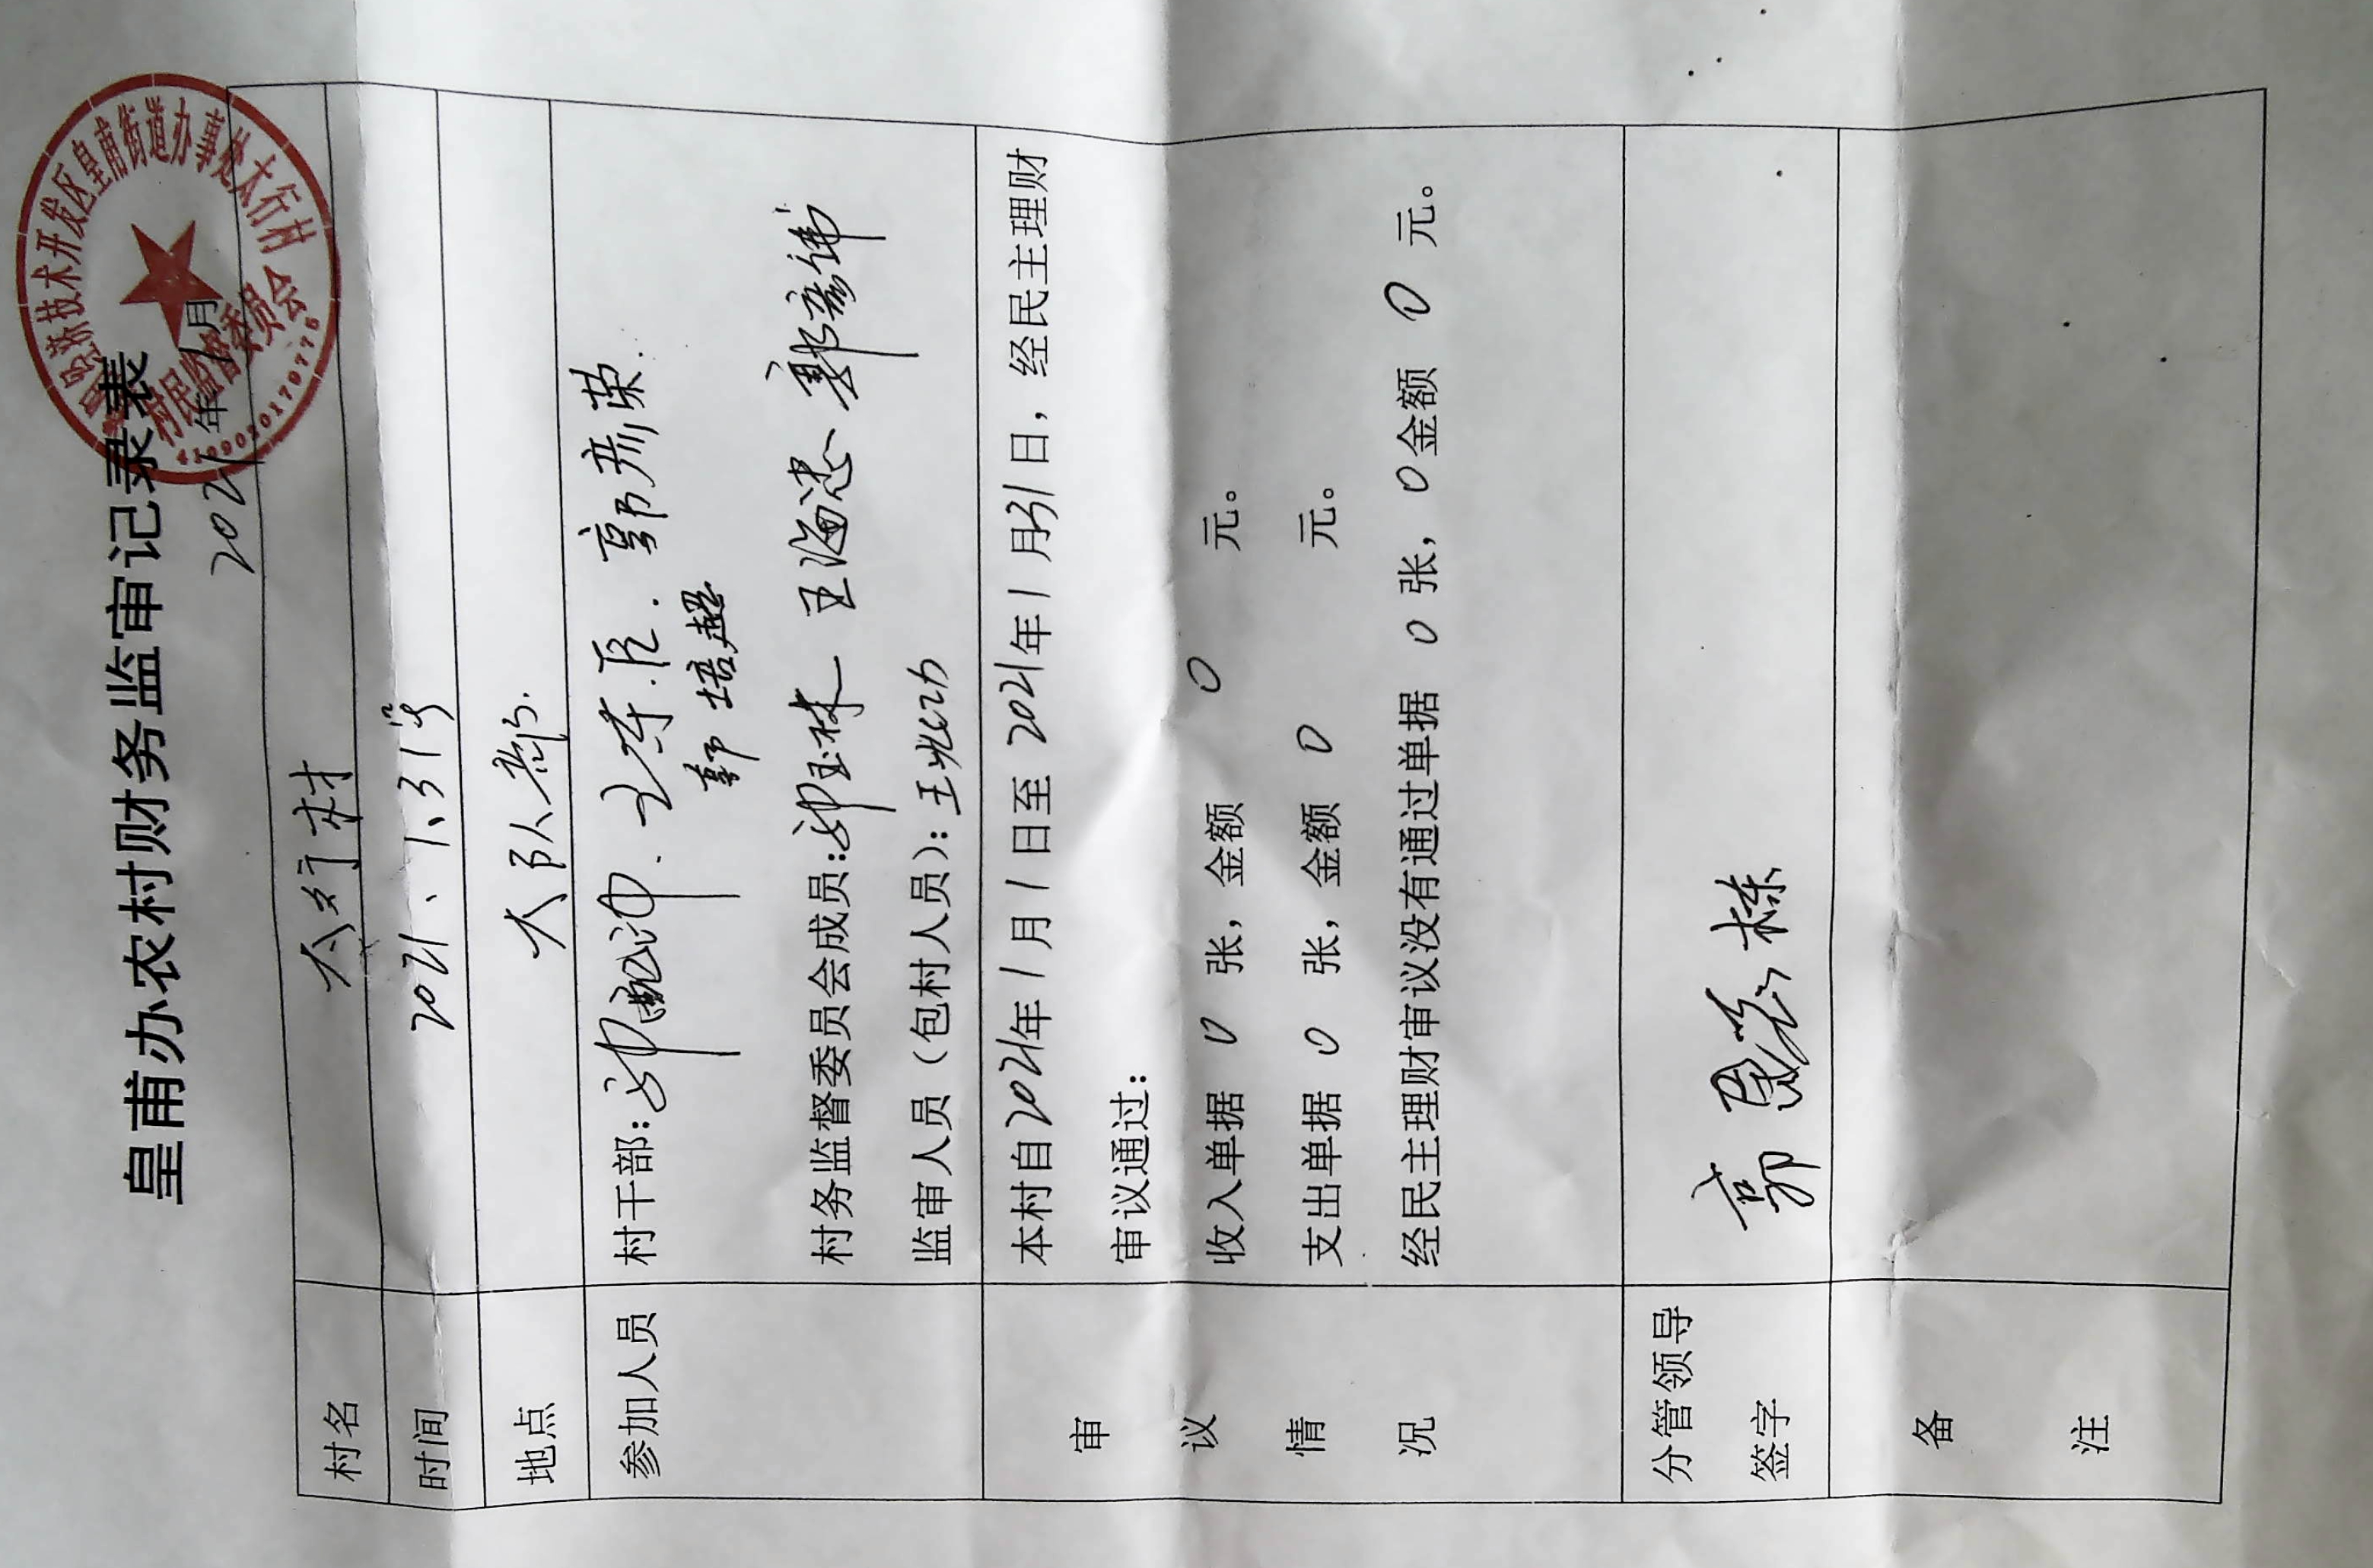 皇甫办农村财务监审记录表
2021年1月
经济技术开发区皇甫街道办事处太行村
村民监督委员会
村名 太行村
时间 2021、1、31号
地点 大队部.
参加人员 村干部: 郭彦荣.
郭培超
村务监督委员会成员: 王海忠
监审人员（包村人员）: 王兆功
审议情况
本村自2021年1月1日至2021年1月31日，经民主理财
审议通过:
收入单据 0 张，金额 0 元。
支出单据 0 张，金额 0 元。
经民主理财审议没有通过单据 0 张，0金额 0 元。
分管领导
签字 郭
备注